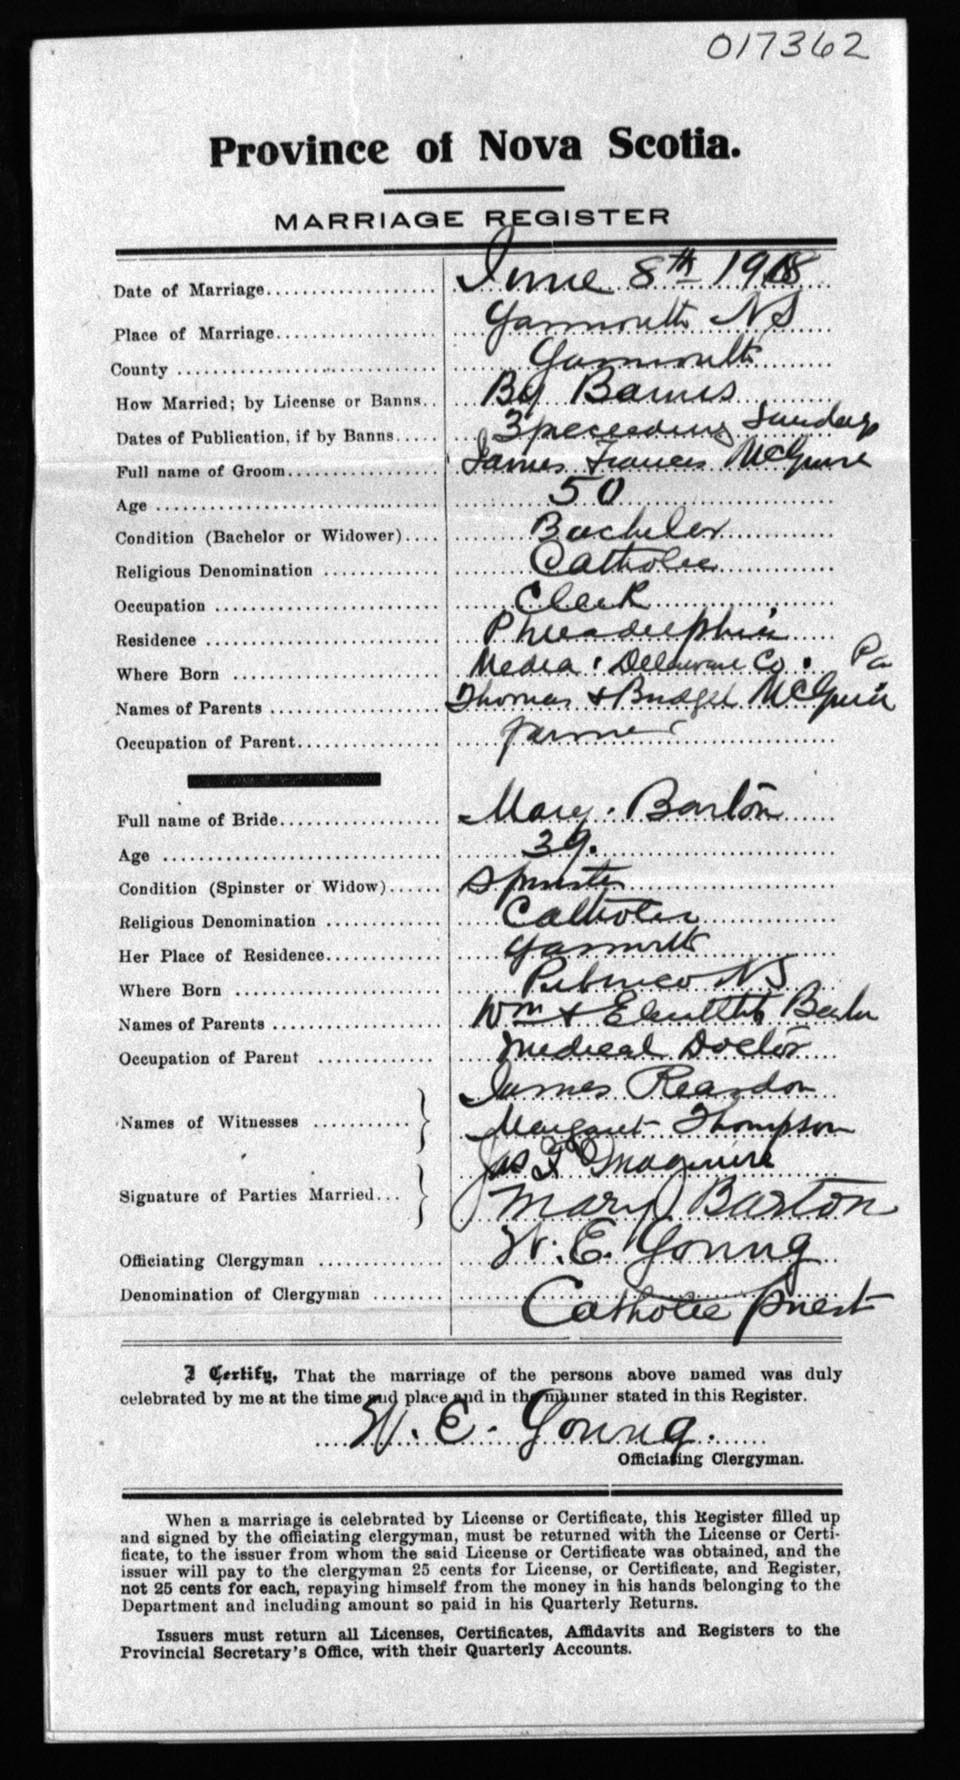 017362
Province of Nova Scotia.
MARRIAGE REGISTER
Date of Marriage.................... June 8th 1918
Place of Marriage................... Yarmouth NS
County ............................. Yarmouth
How Married; by License or Banns.. By Banns
Dates of Publication, if by Banns..... 3 preceeding Sundays
Full name of Groom.................. James Francis McGuire
Age ................................ 50
Condition (Bachelor or Widower).... Bachelor
Religious Denomination ............. Catholic
Occupation ......................... Clerk
Residence .......................... Philadelphia
Where Born ....................... Media, Delaware Co. Pa
Names of Parents ................... Thomas & Bridget McGuire
Occupation of Parent................ Farmer
Full name of Bride.................. Mary Barton
Age ................................ 39.
Condition (Spinster or Widow)...... Spinster
Religious Denomination ............. Catholic
Her Place of Residence.............. Yarmouth
Where Born ....................... Pubnico NS
Names of Parents ................... Wm & Elizabeth
Occupation of Parent ............. Medical Doctor
Names of Witnesses ........... James Reardon
Margaret Thompson
Signature of Parties Married... Jas F Maguire
Mary Barton
Officiating Clergyman .............. W. E. Young
Denomination of Clergyman ........ Catholic Priest
I Certify, That the marriage of the persons above named was duly
celebrated by me at the time and place and in the manner stated in this Register.
W. E. Young.
Officiating Clergyman.
When a marriage is celebrated by License or Certificate, this Register filled up
and signed by the officiating clergyman, must be returned with the License or Certi-
ficate, to the issuer from whom the said License or Certificate was obtained, and the
issuer will pay to the clergyman 25 cents for License, or Certificate, and Register,
not 25 cents for each, repaying himself from the money in his hands belonging to the
Department and including amount so paid in his Quarterly Returns.
Issuers must return all Licenses, Certificates, Affidavits and Registers to the
Provincial Secretary's Office, with their Quarterly Accounts.